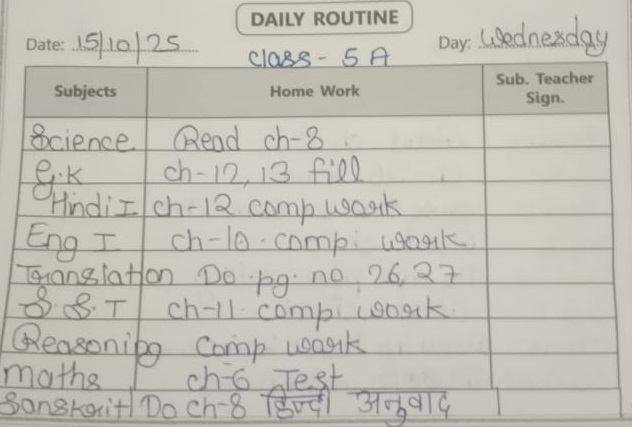 DAILY ROUTINE
Date: 15/10/25 Day: Wednesday
class - 5 A
Subjects Home Work Sub. Teacher Sign.
Science Read ch-8
G.K ch-12, 13 fill
Hindi I ch-12 comp work
Eng I ch-10. comp. work
Translation Do pg. no. 26, 27
S.S.T ch-11. comp. work.
Reasoning comp work
maths ch-6 Test
Sanskrit Do ch-8 हिन्दी अनुवाद